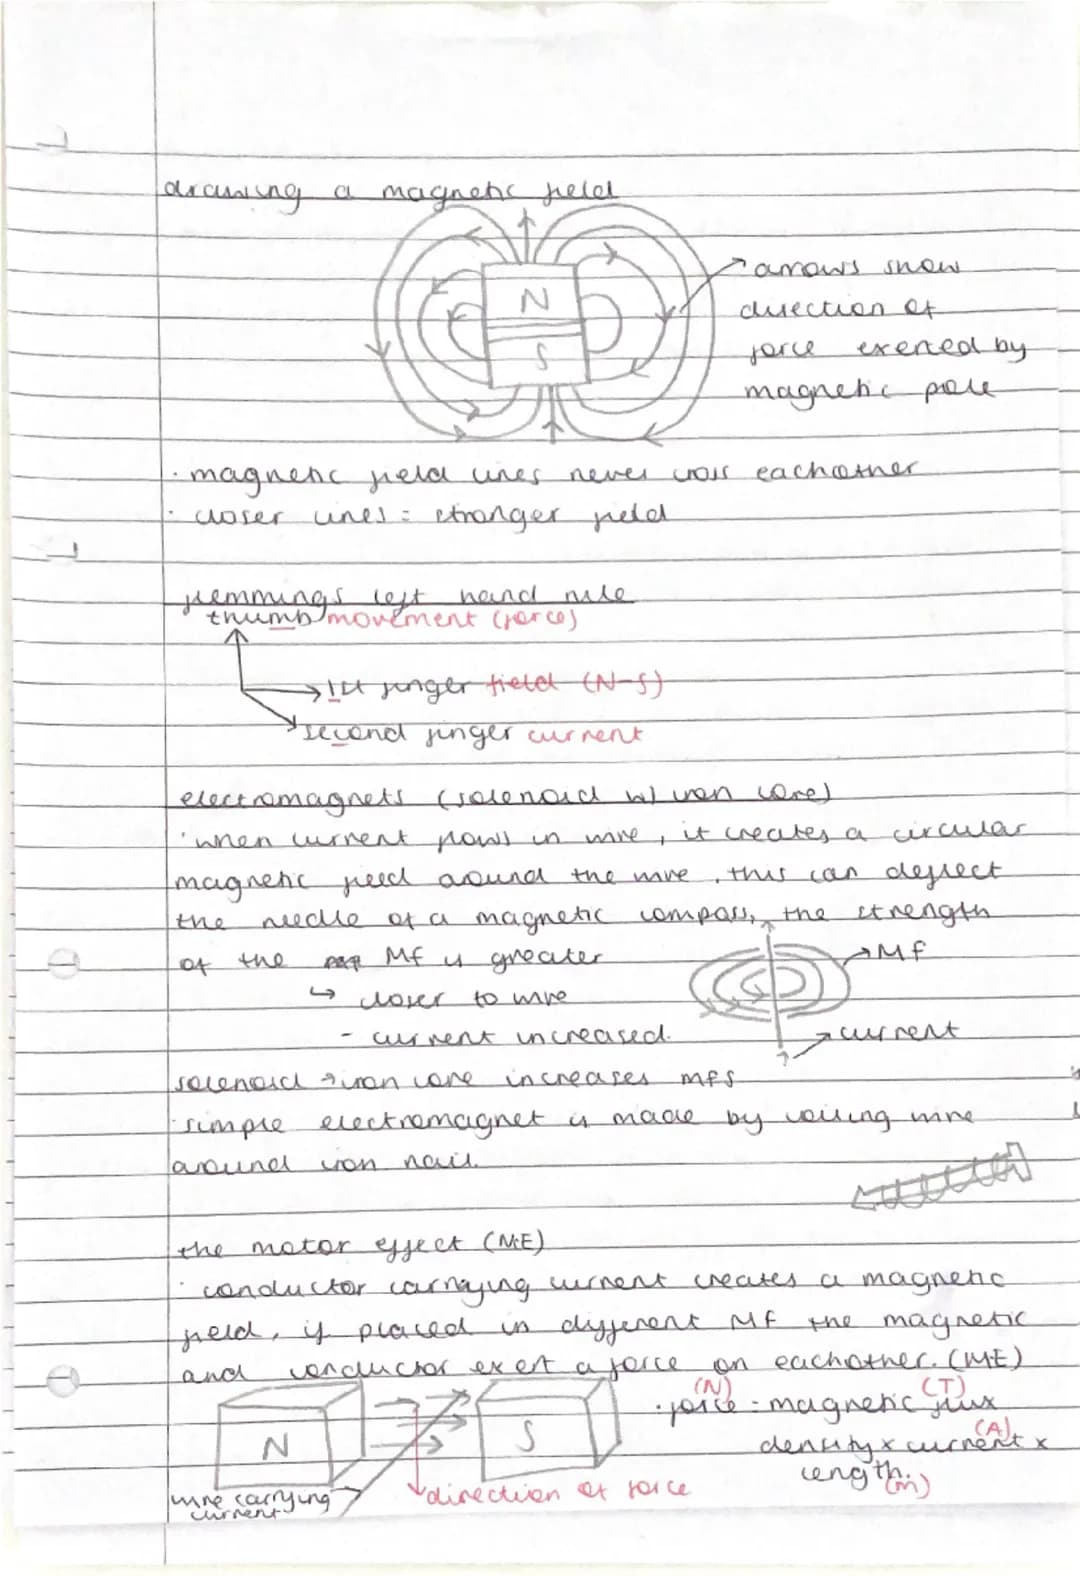 drawing a magnetic field
N
S
arrows show
direction of
force exerted by
magnetic pole
· magnetic field lines never cross eachother
· closer lines = stronger field
flemmings left hand rule
thumb movement (force)
1st finger field (N-S)
second finger current
electromagnets (solenoid w/ iron core)
· when current flows in wire, it creates a circular
magnetic field around the wire, this can deflect
the needle of a magnetic compass, the strength
of the MF is greater
↳ closer to wire
- current increased.
MF
current
solenoid → iron core increases MFS
· simple electromagnet is made by coiling wire
around iron nail.
the motor effect (ME)
· conductor carrying current creates a magnetic
field, if placed in different MF the magnetic
and conductor exert a force on eachother. (ME)
N
S
wire carrying
current
direction of force
(N) (T)
· force = magnetic flux
(A)
density x current x
length.
(m)